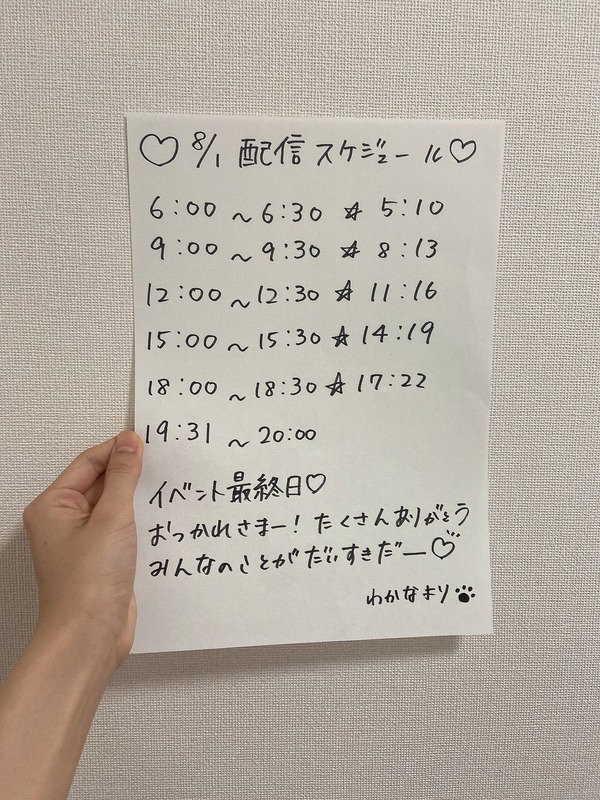 ♡ 8/1 配信スケジュール♡
6:00 ~ 6:30 ☆ 5:10
9:00 ~ 9:30 ☆ 8:13
12:00 ~ 12:30 ☆ 11:16
15:00 ~ 15:30 ☆ 14:19
18:00 ~ 18:30 ☆ 17:22
19:31 ~ 20:00
イベント最終日♡
おつかれさまー!たくさんありがとう
みんなのことがだいすきだー♡
わかなまり🐾